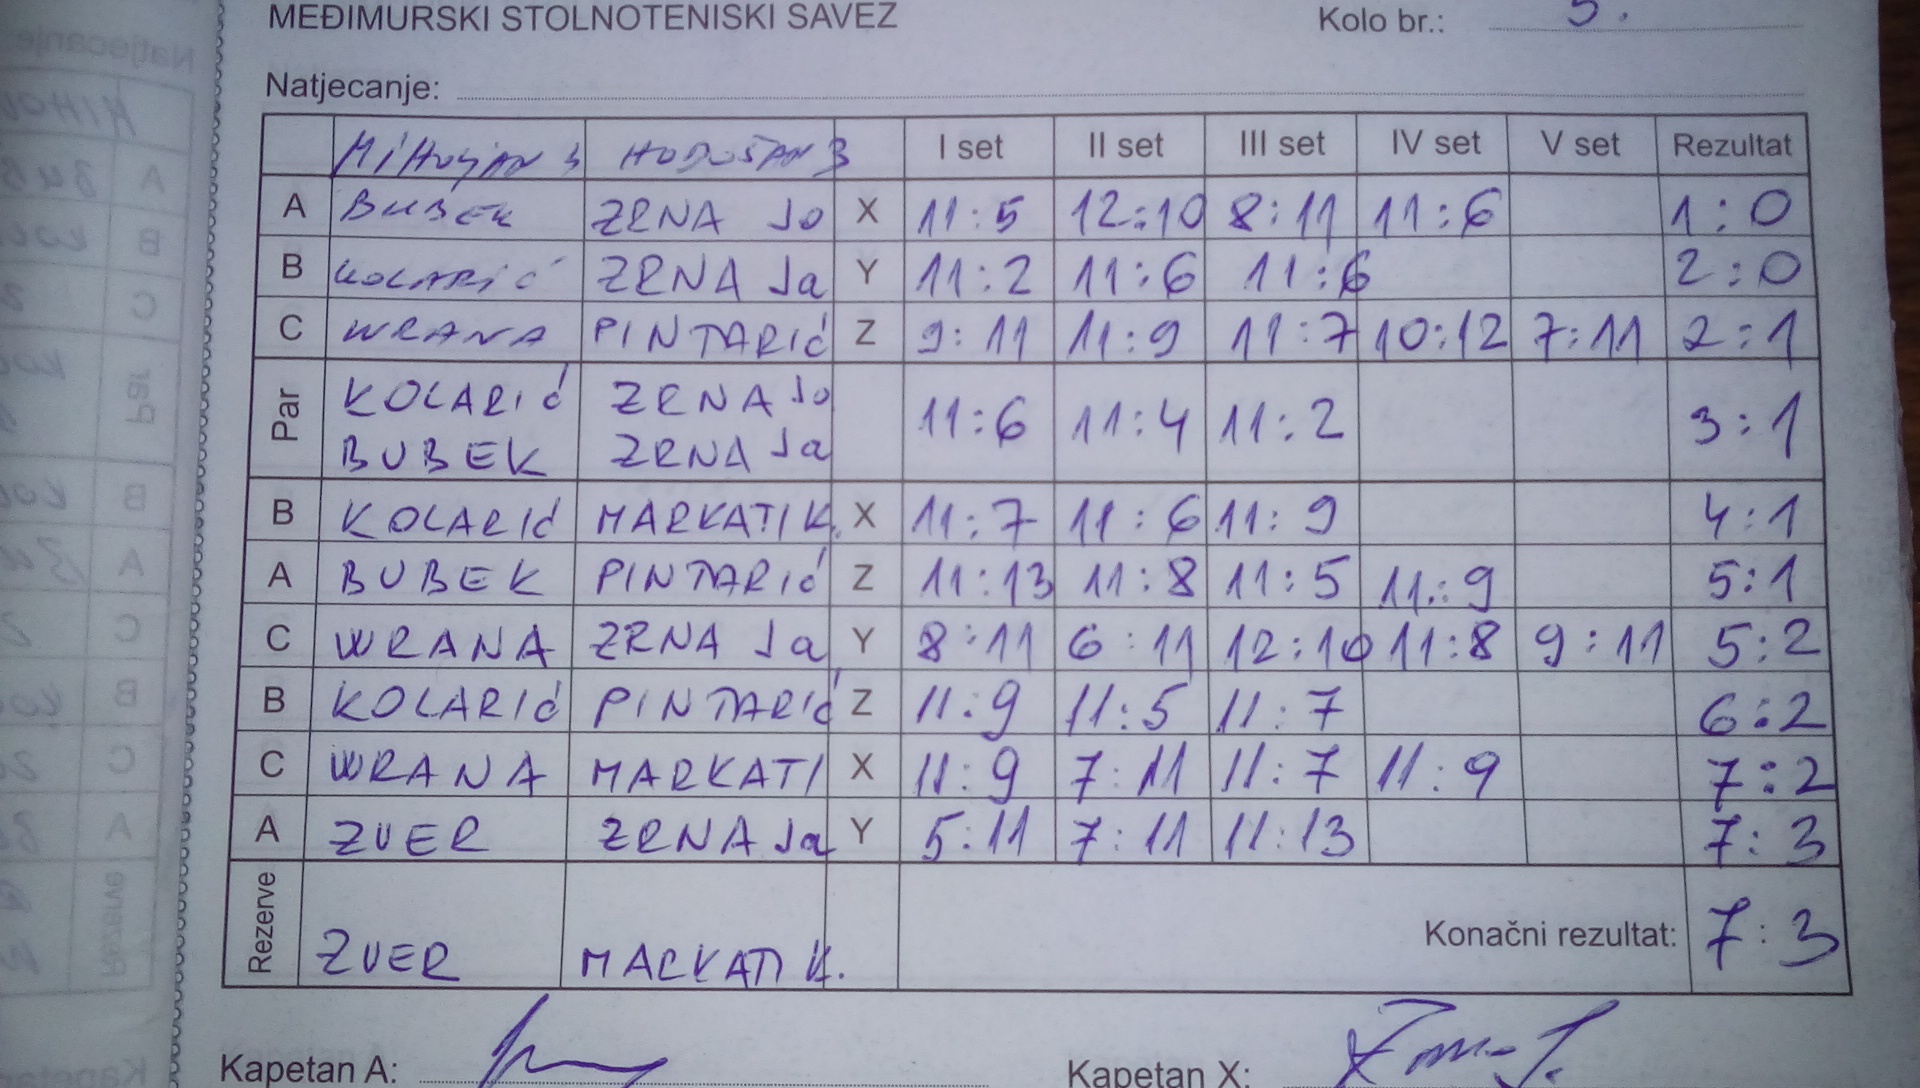 MEĐIMURSKI STOLNOTENISKI SAVEZ Kolo br.: 5.
Natjecanje:
MIHOVLJAN 3 HODOŠAN 3 I set II set III set IV set V set Rezultat
A BUBEK ZRNA Jo X 11:5 12:10 8:11 11:6 1:0
B KOLARIĆ ZRNA Ja Y 11:2 11:6 11:6 2:0
C WRANA PINTARIĆ Z 9:11 11:9 11:7 10:12 7:11 2:1
Par KOLARIĆ ZRNA Jo 11:6 11:4 11:2 3:1
BUBEK ZRNA Ja
B KOLARIĆ MARKATI K. X 11:7 11:6 11:9 4:1
A BUBEK PINTARIĆ Z 11:13 11:8 11:5 11:9 5:1
C WRANA ZRNA Ja Y 8:11 6:11 12:10 11:8 9:11 5:2
B KOLARIĆ PINTARIĆ Z 11:9 11:5 11:7 6:2
C WRANA MARKATI X 11:9 7:11 11:7 11:9 7:2
A ZVER ZRNA Ja Y 5:11 7:11 11:13 7:3
Rezerve ZVER MARKATI K. Konačni rezultat: 7:3
Kapetan A: Kapetan X: